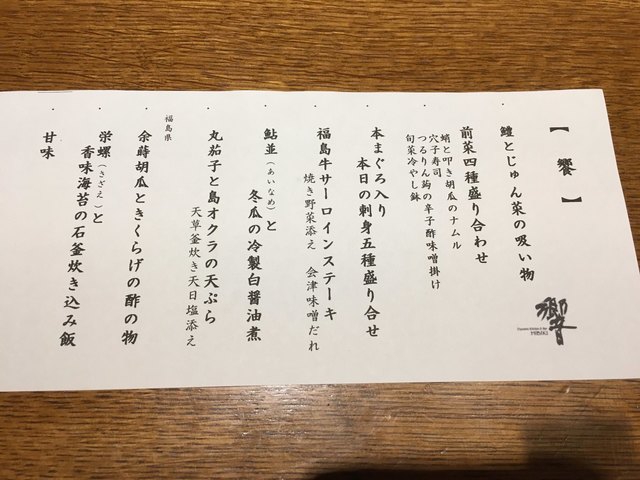 【饗】
鱧とじゅん菜の吸い物
前菜四種盛り合わせ
蛸と叩き胡瓜のナムル
穴子寿司
つるりん蒟の辛子酢味噌掛け
旬菜冷やし鉢
本まぐろ入り
本日の刺身五種盛り合せ
福島牛サーロインステーキ
焼き野菜添え 会津味噌だれ
鮎並(あいなめ)と
冬瓜の冷製白醤油煮
丸茄子と島オクラの天ぷら
天草釜炊き天日塩添え
福島県
余蒔胡瓜ときくらげの酢の物
栄螺(さざえ)と
香味海苔の石釜炊き込み飯
甘味
響
HIBIKI